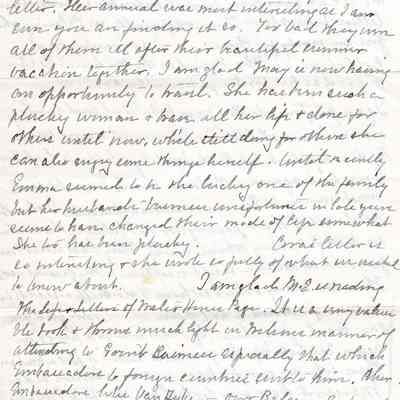 letter. Her annual was most interesting as I am
sure you are finding it so. Too bad they were
all of them ill after their beautiful summer
vacation together. I am glad May is now having
an opportunity to travel. She has been such a
plucky woman & been all her life & done for
others until now, while still doing for others she
can also enjoy some things herself. Until recently
Emma seemed to be the lucky one of the family
but her husband's business misfortunes in late years
seem to have changed their mode of life somewhat
She too has been plucky. Cora's letter is
so interesting & she wrote so fully of what we wished
to know about. I am glad is reading
The Life & Letters of Walter Hines Page. It is a very
book & throws much light on Wilson's manner of
attending to Gov't business especially that which
Embassadors to foreign countries sent to him.
Embassadors like Van Dyke